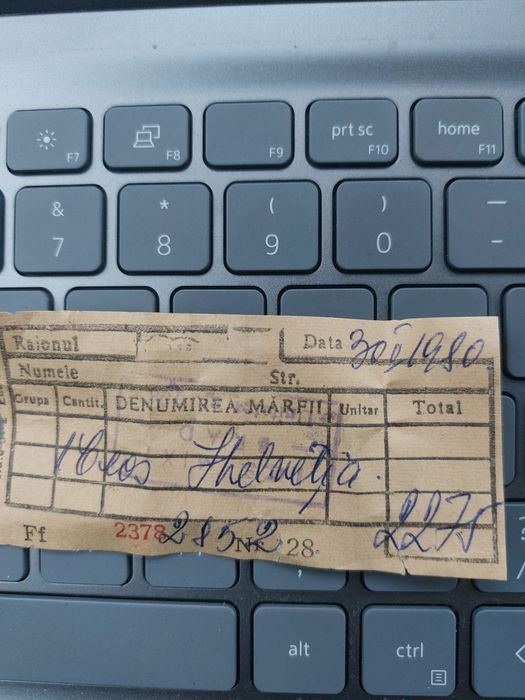 F7 F8 F9 prt sc F10 home F11
& 7 * 8 ( 9 ) 0 — -
Raionul Data 30 I 1980
Numele Str.
Grupa Cantit. DENUMIREA MĂRFII Unitar Total
1 Ceas Thelvetia 2275
Ff 2378 2852 Nr. 28
alt ctrl